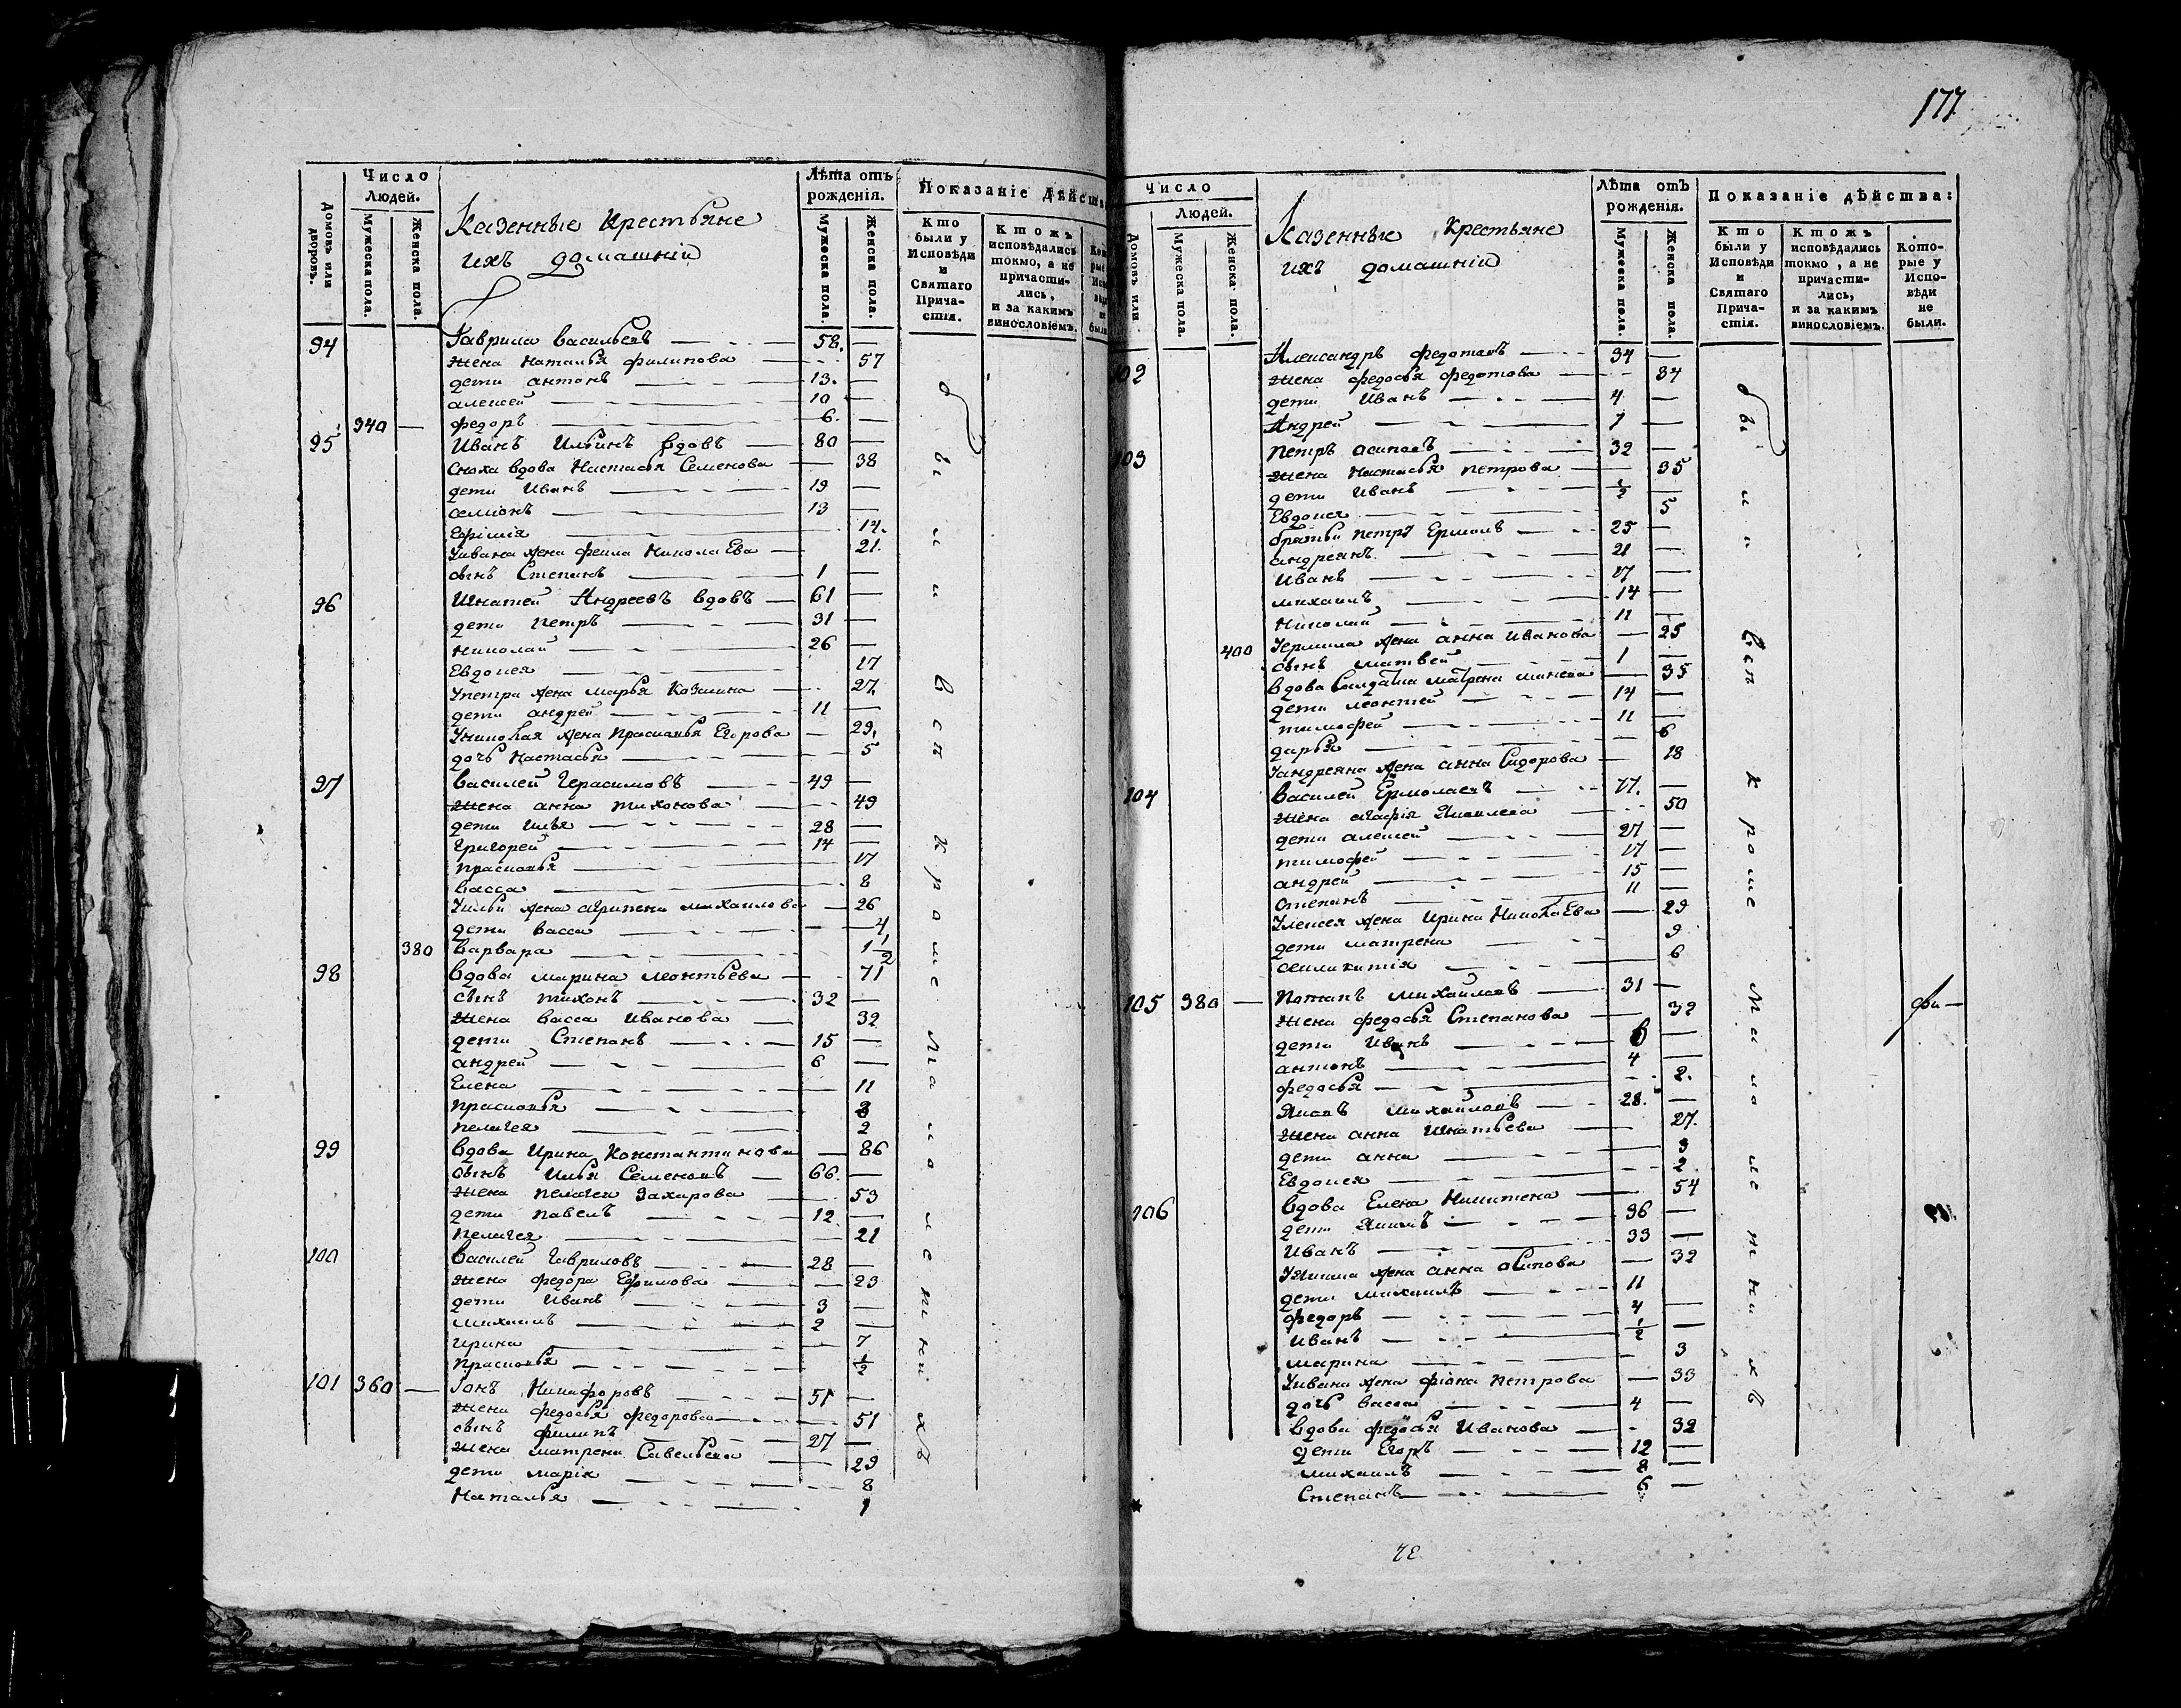 Домовъ или дворовъ.
Число Людей.
Мужеска пола.
Женска пола.
Казенныѣ крестьяне
ихъ домашніи
Лѣта отъ рожденія.
Мужеска пола.
Женска пола.
Показаніе дѣйств
Кто были у Исповѣди и Святаго Прича-стія.
Ктожъ исповѣдались токмо, а не причасти-лись, и за какимъ винословіемъ.
94 Гаврила васильевъ 58.
жена наталья филипова 57
дети антонъ 13.
алексей 10
340 федоръ 6.
95 Иванъ Ильинъ вдовъ 80
сноха вдова Настасья Семенова 38
дети Иванъ 19
семіонъ 13
Ефимія 14.
Уивана жена фекла николаева 21.
сынъ Степанъ 1
96 Игнатей Андреевъ вдовъ 61
дети петръ 31
николай 26
Евдокея 17
Упетра жена марья Козмина 27
дети андрей 11
Униколая жена Прасковья Егорова 29
дочь настасья 5
97 василей Герасимовъ 49
жена анна тихонова 49
дети илья 28
григорей 14
прасковья 17
васса 8
Уильи жена агрипена михаилова 26
дети васса 4
380 варвара 1 1/2
98 вдова марина леонтьева 71
сынъ тихонъ 32
жена васса иванова 32
дети Степанъ 15
андрей 6
Елена 11
прасковья 3
пелагея 2
99 вдова Ирина Константинова 86
сынъ Илья Семеновъ 66.
жена пелагея Захарова 53
дети павелъ 12
пелагея 21
100 василей гавриловъ 28
жена федора Ефимова 23
дети Иванъ 3
михаилъ 2
ирина 7
прасковья 1/2
101 360 Іонъ Никифоровъ 51
жена федосья федорова 51
сынъ филипъ 27
жена матрена Савельева 29
дети марія 8
Наталья 1
были всѣ кроме малолетнихъ
177
Число Людей.
Домовъ или
Мужеска пола.
Женска пола.
Казенныѣ крестьяне
ихъ домашніи
Лѣта отъ рожденія.
Мужеска пола.
Женска пола.
Показаніе дѣйства:
Кто были у Исповѣди и Святаго Прича-стія.
Ктожъ исповѣдались токмо, а не причасти-лись, и за какимъ винословіемъ.
Кото-рые у Испо-вѣди не были.
102 Александръ федотовъ 34
жена федосья федотова 34
дети Иванъ 4
Андрей 1
103 петръ осиповъ 32
жена настасья петрова 35
дети Иванъ 1/2
Евдокея 5
братьи петръ Ермилъ 25
андреянъ 21
Иванъ 17
михаилъ 14
николай 11
400 Уермила жена анна иванова 25
сынъ матвей 1
вдова Солдатка матрена 35
дети леонтей 14
тимофей 11
дарья 6
Уандреяна жена анна Сидорова 18
104 василей Ермолаевъ 77.
жена агафія Яковлева 50
дети алексей 27
тимофей 17
андрей 15
степанъ 11
Уалексея жена Ирина Николаева 29
дети матрена 9
6
105 380 Потапъ михайловъ 31
жена федосья Степанова 32
дети Иванъ 6
антонъ 4
федосья 2.
Яковъ михайловъ 28.
жена анна Игнатьева 27.
дети анна 3
Евдокея 2
106 вдова Елена Никитина 54
дети Якимъ 36
Иванъ 33
Уякима жена анна осипова 32
дети михаилъ 11
федоръ 4
Иванъ 1/2
марина 3
Уивана жена петрова 33
дочь васса 4
вдова федосья Иванова 32
дети Егоръ 12
михаилъ 8
Степанъ 6
были всѣ кроме малолетнихъ